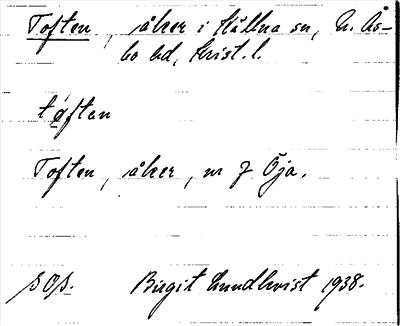 Toften, åker i Hållna sn, N. Ås-
bo hd, Krist. l.
tøftan
Toften, åker, nr 7 Öja.
SOS. Birgit Lundkvist 1938.